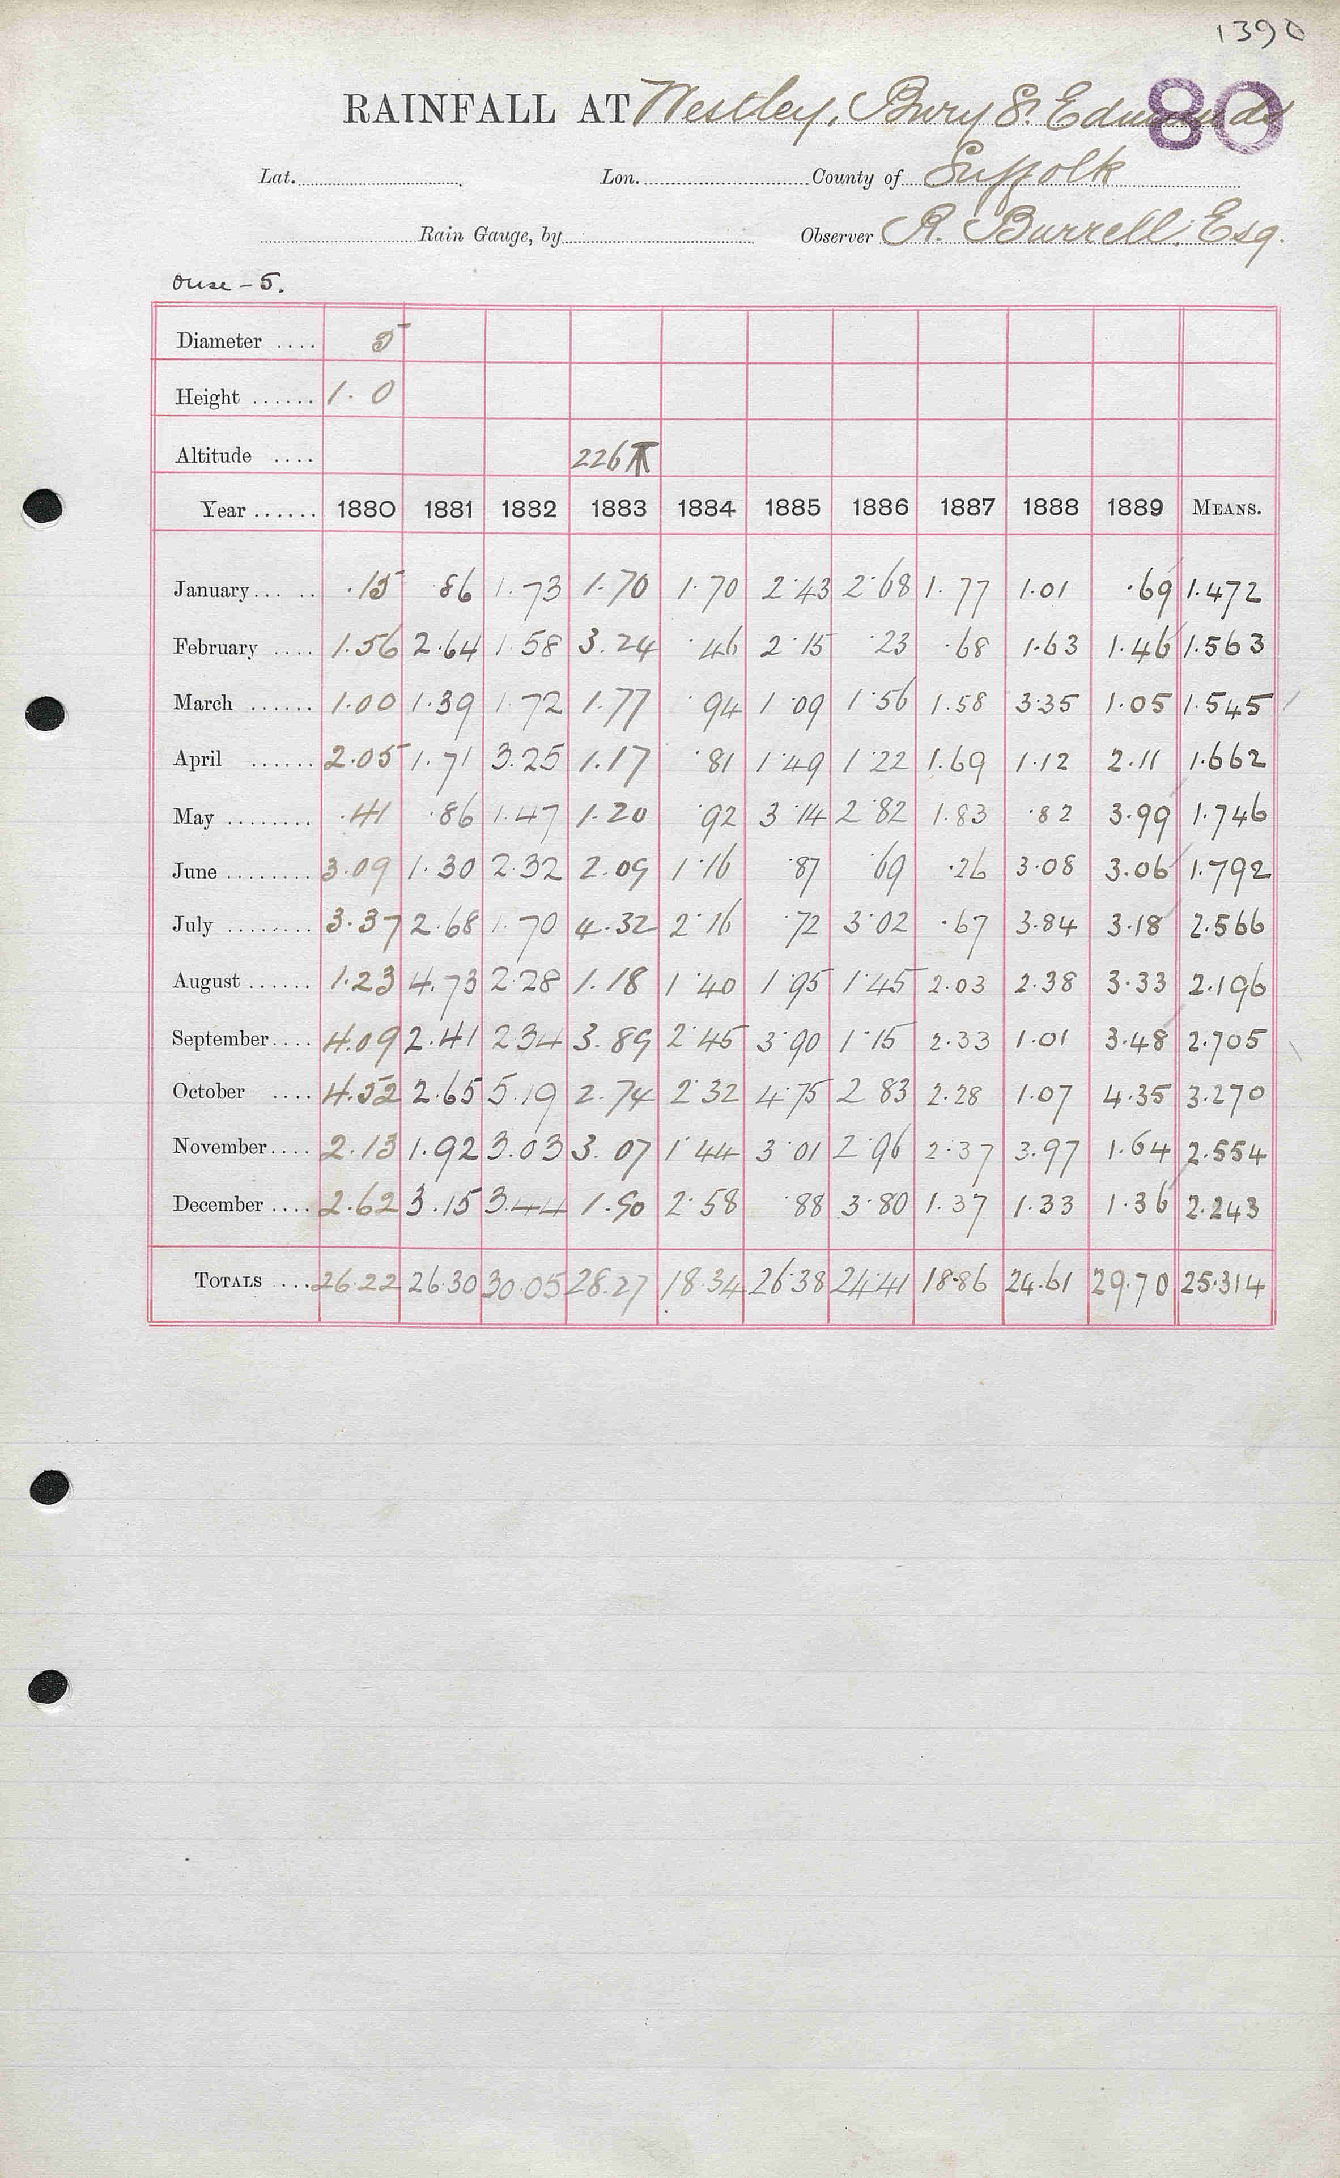 1390
RAINFALL AT Westley, Bury St. Edmunds 80
Lat. Lon. County of Suffolk
Rain Gauge, by Observer R. Burrell. Esq.
Ouse – 5.
Diameter .... 5
Height ...... 1. 0
Altitude .... 226
Year ...... 1880 1881 1882 1883 1884 1885 1886 1887 1888 1889 MEANS.
January ... .. .15 .86 1.73 1.70 1.70 2.43 2.68 1.77 1.01 .69 1.472
February .... 1.56 2.64 1.58 3.24 .46 2.15 .23 .68 1.63 1.46 1.563
March ...... 1.00 1.39 1.72 1.77 .94 1.09 1.56 1.58 3.35 1.05 1.545
April ...... 2.05 1.71 3.25 1.17 .81 1.49 1.22 1.69 1.12 2.11 1.662
May ........ .41 .86 1.47 1.20 .92 3.14 2.82 1.83 .82 3.99 1.746
June ........ 3.09 1.30 2.32 2.09 1.16 .87 .69 .26 3.08 3.06 1.792
July ........ 3.37 2.68 1.70 4.32 2.16 .72 3.02 .67 3.84 3.18 2.566
August ...... 1.23 4.73 2.28 1.18 1.40 1.95 1.45 2.03 2.38 3.33 2.196
September .... 4.09 2.41 2.34 3.89 2.45 3.90 1.15 2.33 1.01 3.48 2.705
October .... 4.52 2.65 5.19 2.74 2.32 4.75 2.83 2.28 1.07 4.35 3.270
November .... 2.13 1.92 3.03 3.07 1.44 3.01 2.96 2.37 3.97 1.64 2.554
December .... 2.62 3.15 3.44 1.90 2.58 .88 3.80 1.37 1.33 1.36 2.243
TOTALS .... 26.22 26.30 30.05 28.27 18.34 26.38 24.41 18.86 24.61 29.70 25.314